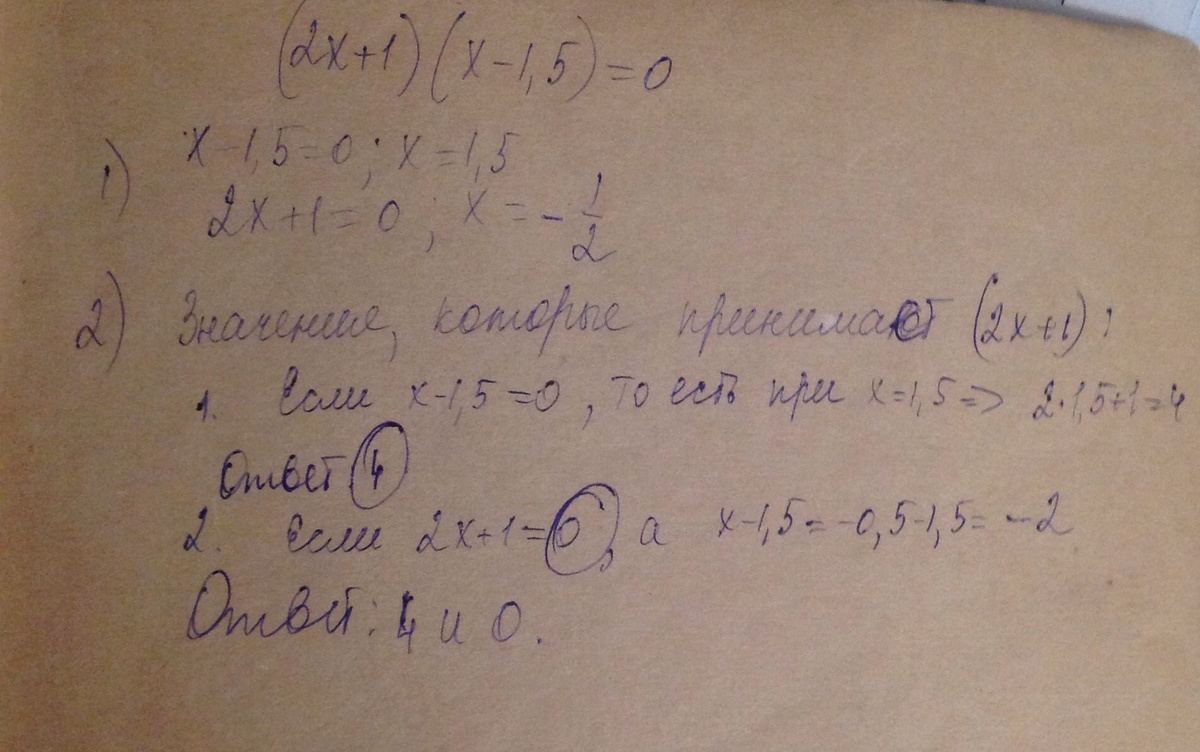 (2x+1)(x-1,5)=0
1) x-1,5=0; x=1,5
2x+1=0; x=-1/2
2) Значение, которые принимает (2x+1):
1. Если x-1,5=0, то есть при x=1,5=> 2·1,5+1=4
Ответ 4
2. Если 2x+1=0, а x-1,5=-0,5-1,5=-2
Ответ: 4 и 0.